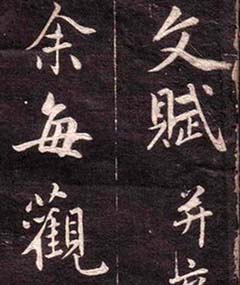 文賦 并序
余每觀